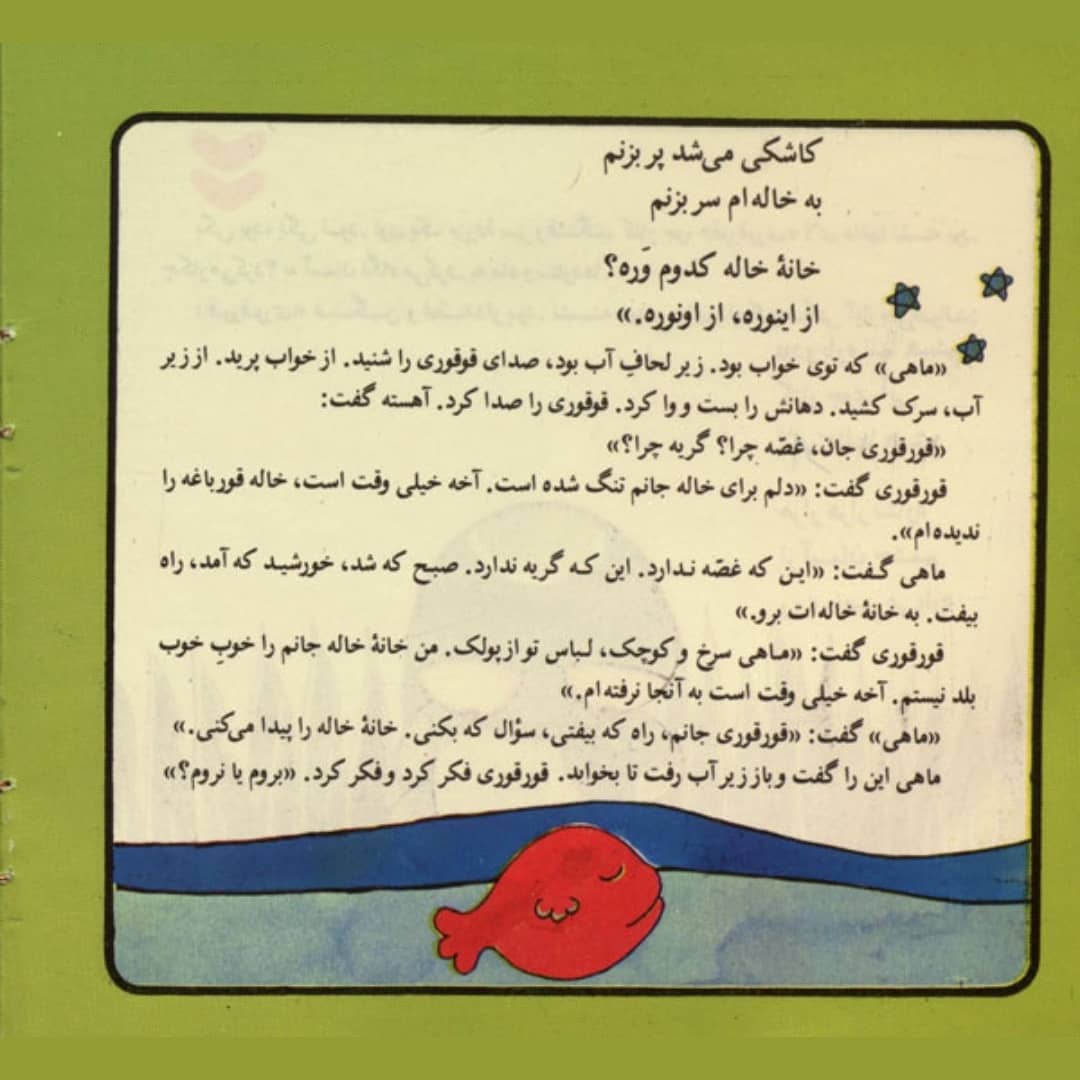 کاشکی می‌شد پر بزنم
به خاله‌ام سر بزنم
خانهٔ خاله کدوم وَره؟
از اینوره، از اونوره.»
«ماهی» که توی خواب بود. زیر لحافِ آب بود، صدای قوقوری را شنید. از خواب پرید. از زیر
آب، سرک کشید. دهانش را بست و وا کرد. قوقوری را صدا کرد. آهسته گفت:
«قورقوری جان، غصّه چرا؟ گریه چرا؟»
قورقوری گفت: «دلم برای خاله جانم تنگ شده است. آخه خیلی وقت است، خاله قورباغه را
ندیده‌ام».
ماهی گفت: «این که غصّه ندارد. این که گریه ندارد. صبح که شد، خورشید که آمد، راه
بیفت. به خانهٔ خاله‌ات برو.»
قورقوری گفت: «ماهی سرخ و کوچک، لباس تو از پولک. من خانهٔ خاله جانم را خوبِ خوب
بلد نیستم. آخه خیلی وقت است به آنجا نرفته‌ام.»
«ماهی» گفت: «قورقوری جانم، راه که بیفتی، سؤال که بکنی. خانهٔ خاله را پیدا می‌کنی.»
ماهی این را گفت و باز زیر آب رفت تا بخوابد. قورقوری فکر کرد و فکر کرد. «بروم یا نروم؟»